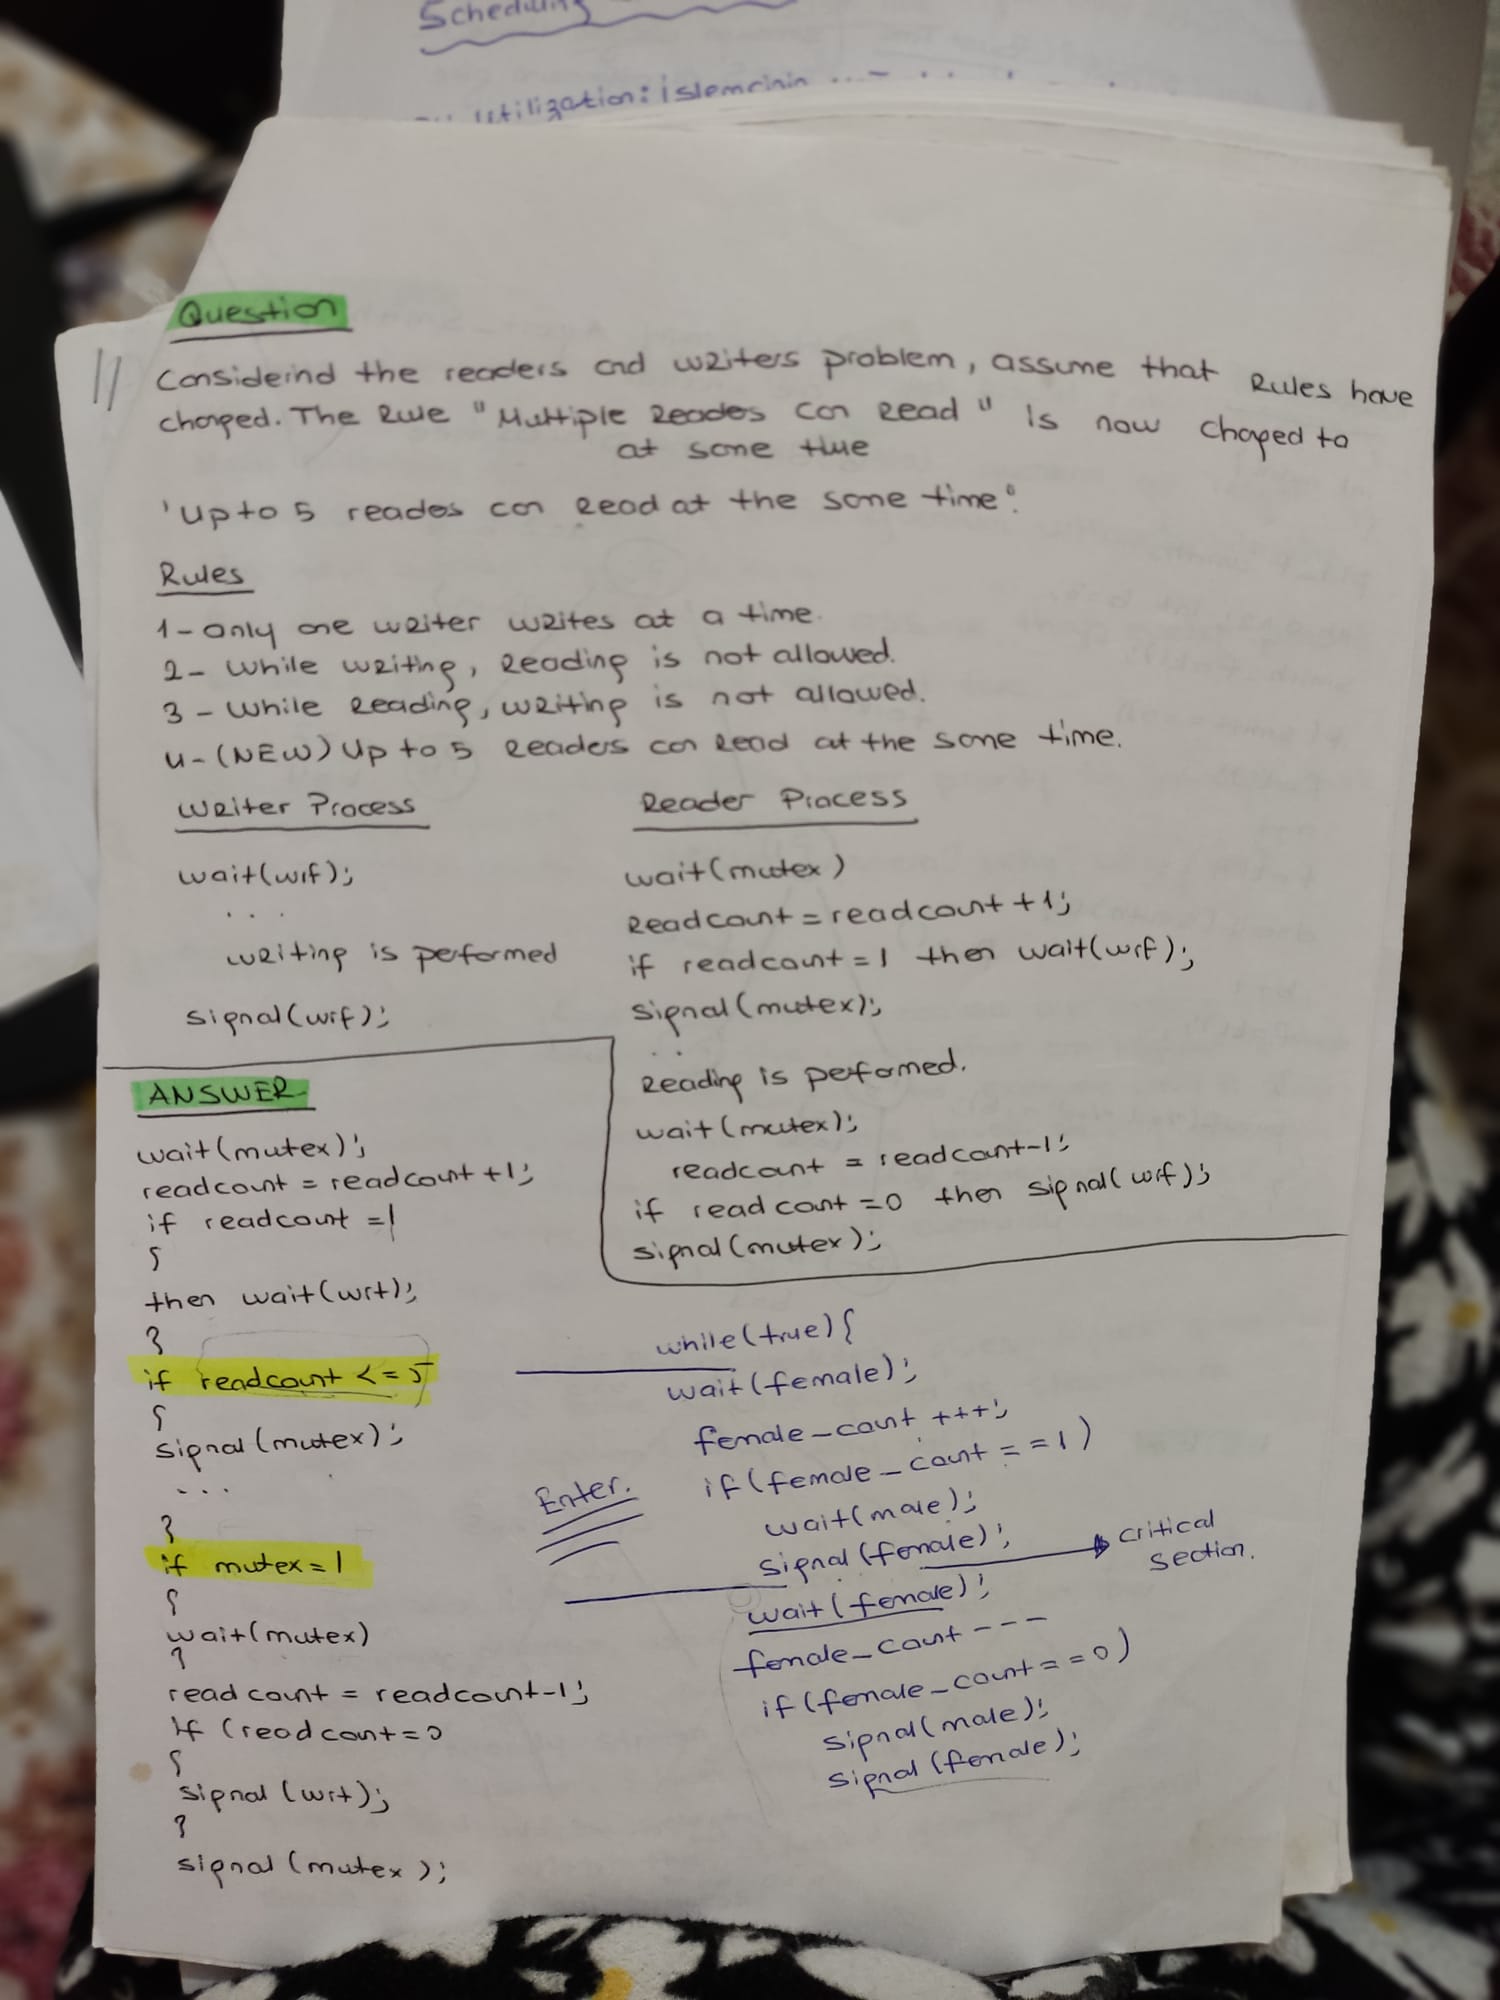 Scheduling
Utilization: İslemcinin
Question
11 Consideind the readers and writers problem, assume that Rules have
chonped. The Rule "Multiple Reades can Read" is now choped to
at some time
'up to 5 reades con Read at the some time"
Rules
1- only one writer writes at a time.
2- while writing, Reading is not allowed.
3 - while Reading, writing is not allowed.
4- (NEW) Up to 5 Readers con Read at the some time.
Writer Process
wait(wrf);
...
writing is performed
signal(wrf);
Reader Process
wait(mutex)
Readcount = readcount +1;
if readcount = 1 then wait(wrf);
signal(mutex);
..
Reading is perfomed.
wait(mutex);
readcount = readcount-1;
if readcount =0 then signal(wrf);
signal(mutex);
ANSWER
wait(mutex);
readcount = readcount +1;
if readcount =1
{
then wait(wrt);
}
if readcount <=5
{
signal(mutex);
...
}
if mutex=1
{
wait(mutex)
}
readcount = readcount-1;
If (readcount=0
{
signal (wrt);
}
signal (mutex);
while(true){
wait(female);
female_count +++;
if(female_count ==1)
Enter.
wait(male);
signal(female);
critical
section.
wait(female);
female_count ---
if(female_count==0)
signal(male);
signal(female);